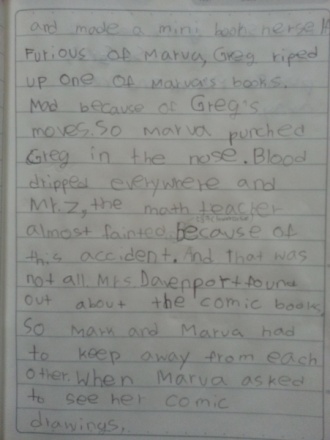 and made a mini book herself
Furious of Marva, Greg riped
up one of Marva's books.
Mad because of Greg's
moves. So Marva punched
Greg in the nose. Blood
dripped everywhere and
Mr. Z, the math teacher
almost fainted. Because of
this accident. And that was
not all Mrs Davenport found
out about the comic books,
So Mark and Marva had
to keep away from each
other. When Marva asked
to see her comic
drawings.